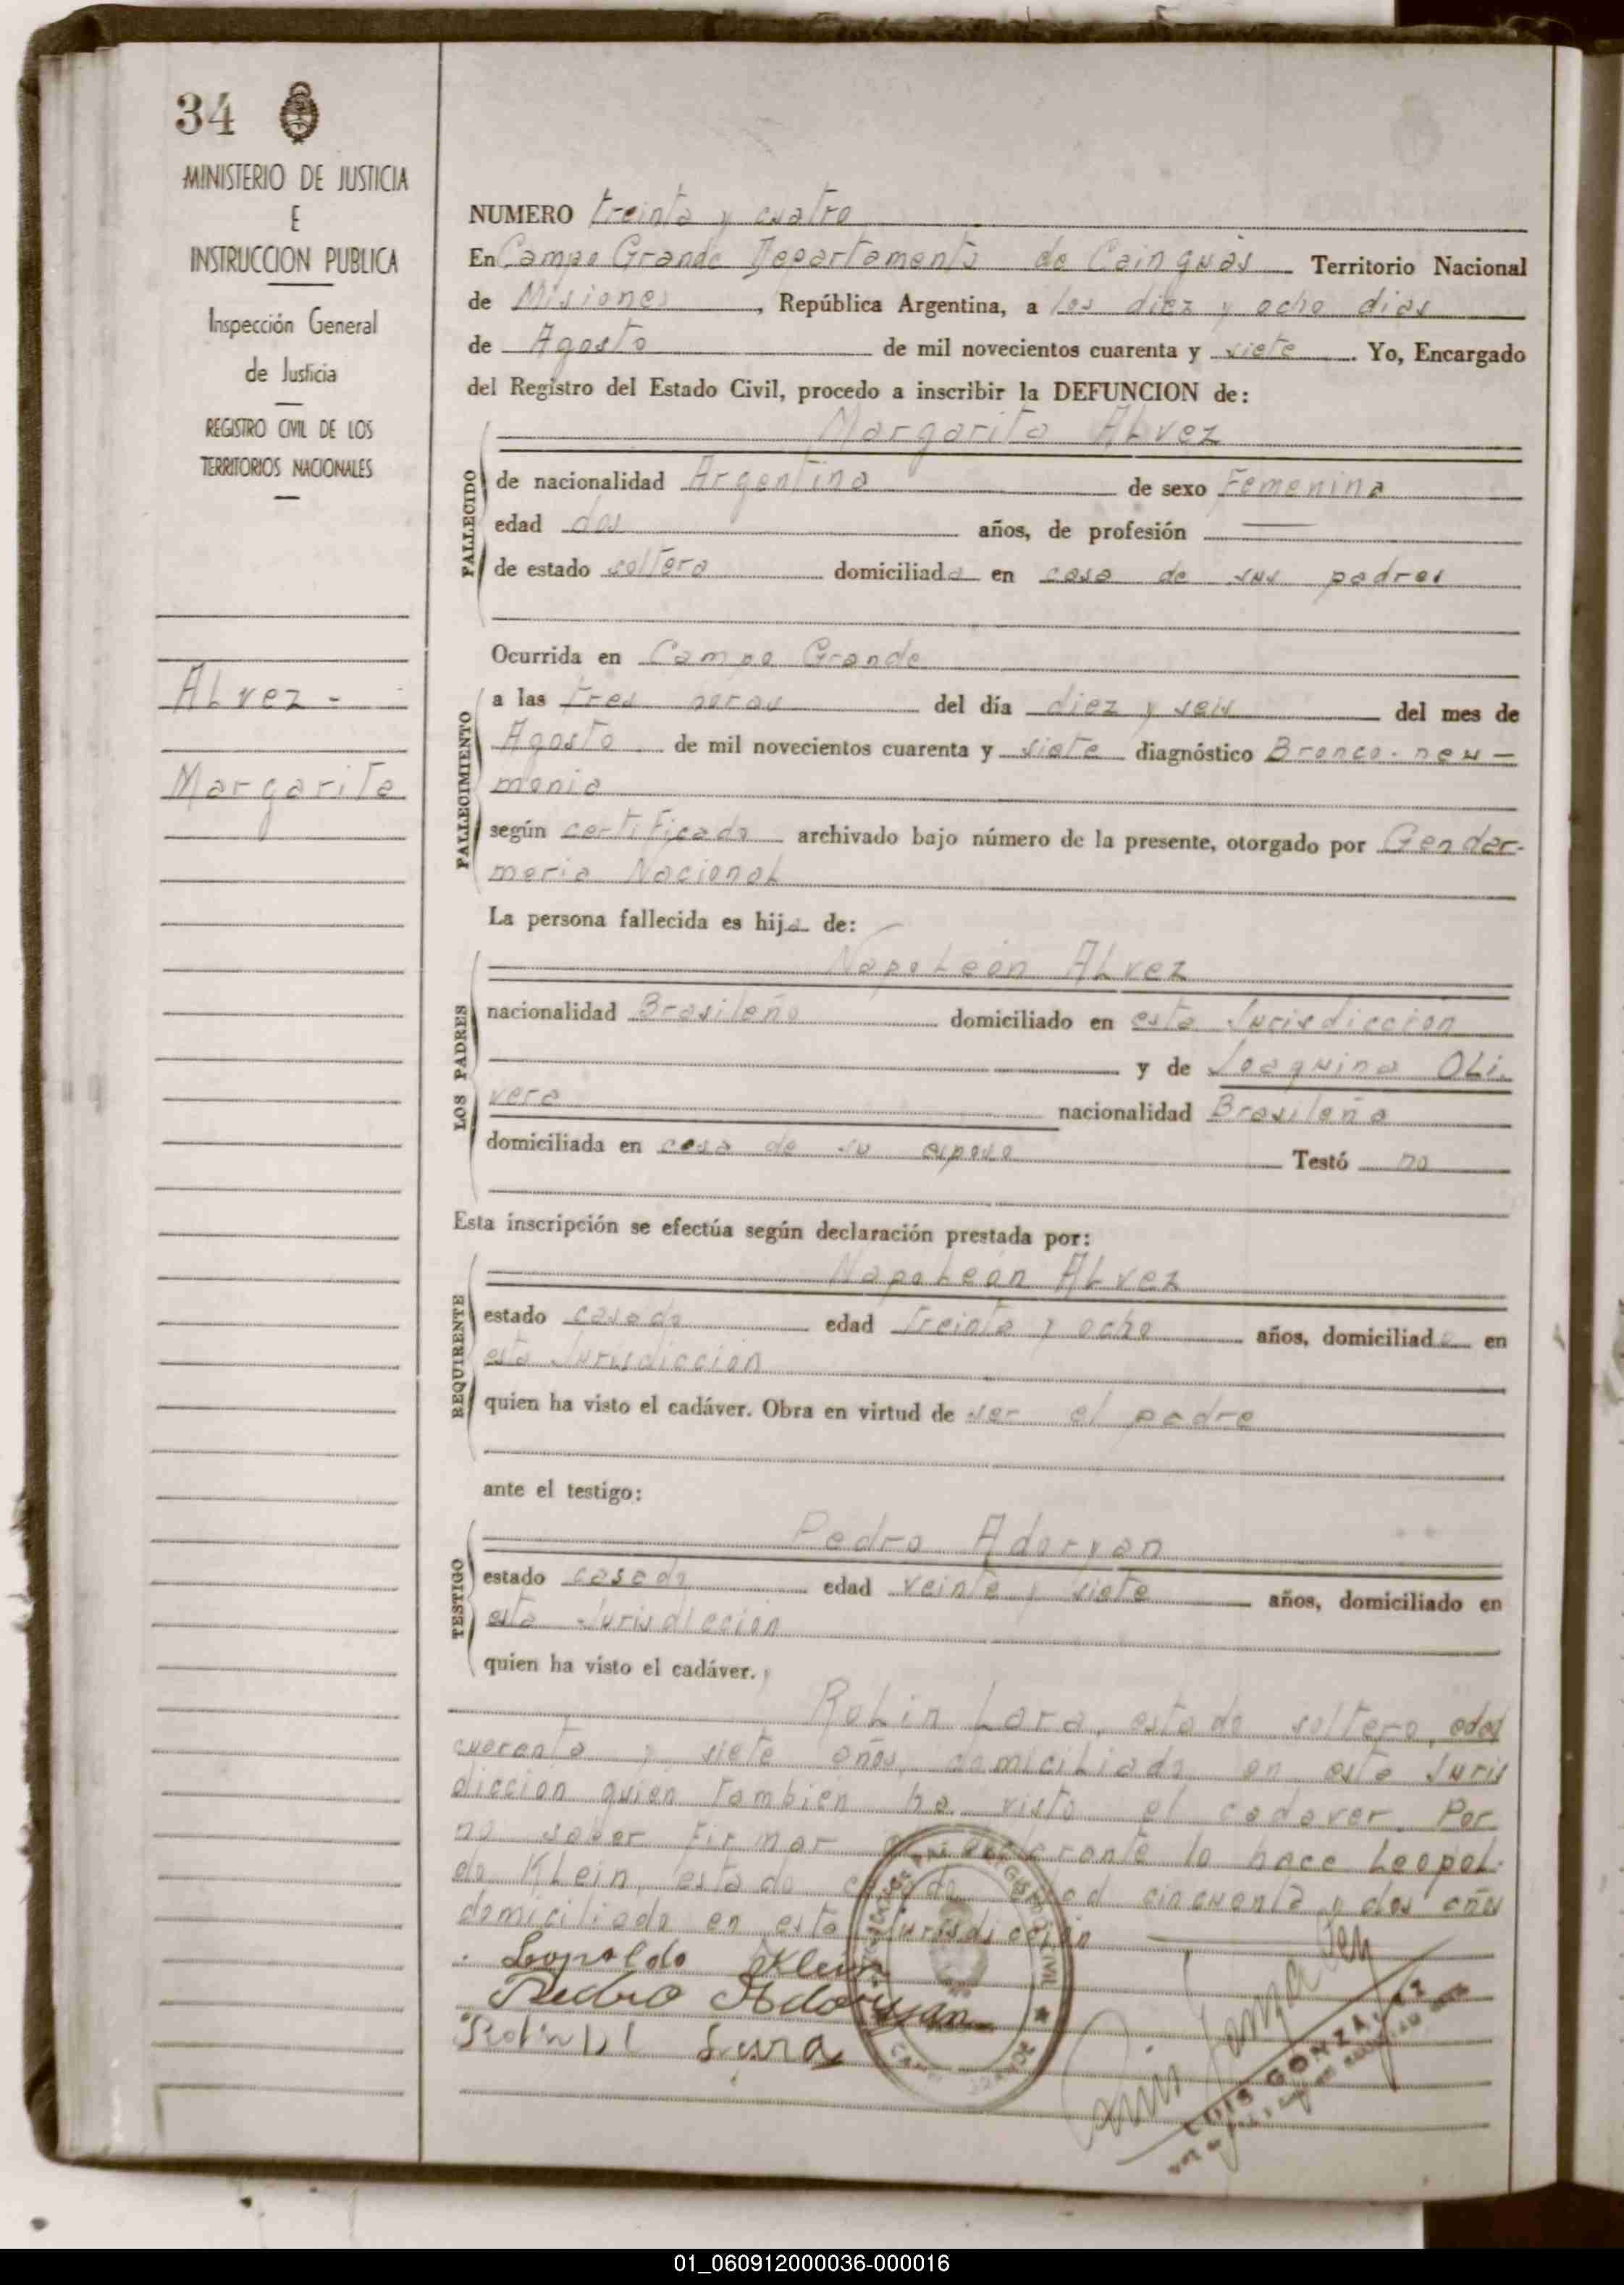 34
MINISTERIO DE JUSTICIA
E
INSTRUCCION PUBLICA
Inspección General
de Justicia
REGISTRO CIVIL DE LOS
TERRITORIOS NACIONALES
ALvez -
Margarita
NUMERO treinta y cuatro
En Campo Grande Departamento de Cainguás Territorio Nacional
de Misiones, República Argentina, a los diez y ocho dias
de Agosto de mil novecientos cuarenta y siete. Yo, Encargado
del Registro del Estado Civil, procedo a inscribir la DEFUNCION de:
Margarita ALvez
FALLECIDO
de nacionalidad Argentina de sexo Femenina
edad dos años, de profesión
de estado soltera domiciliada en casa de sus padres
Ocurrida en Campo Grande
FALLECIMIENTO
a las tres horas del día diez y seis del mes de
Agosto de mil novecientos cuarenta y siete diagnóstico Bronco-neu-
monia
según certificado archivado bajo número de la presente, otorgado por Gendar-
meria Nacional
La persona fallecida es hija de:
Napoleón ALvez
LOS PADRES
nacionalidad Brasileño domiciliado en esta Jurisdiccion
y de Joaquina Oli-
vera nacionalidad Brasileña
domiciliada en casa de su esposo Testó no
Esta inscripción se efectúa según declaración prestada por:
Napoleón ALvez
REQUIRENTE
estado casado edad treinta y ocho años, domiciliado en
esta Jurisdiccion
quien ha visto el cadáver. Obra en virtud de ser el padre
ante el testigo:
Pedro Adoryan
TESTIGO
estado casado edad veinte y siete años, domiciliado en
esta Jurisdiccion
quien ha visto el cadáver.
Rolin Lara, estado soltero, edad
cuarenta y siete años, domiciliado en esta Juris
diccion quien tambien ha visto el cadaver. Por
no saber firmar el declarante lo hace Leopol-
do Klein, estado casado edad cincuenta y dos años
domiciliado en esta Jurisdiccion
Leopoldo Klein
Pedro Adoryan
Lara
LUIS GONZA
01_060912000036-000016